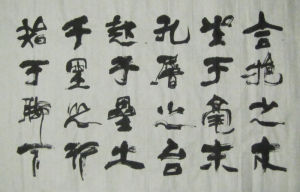 合抱之木
生于毫末
九層之台
起于壘土
千里之行
始于脚下